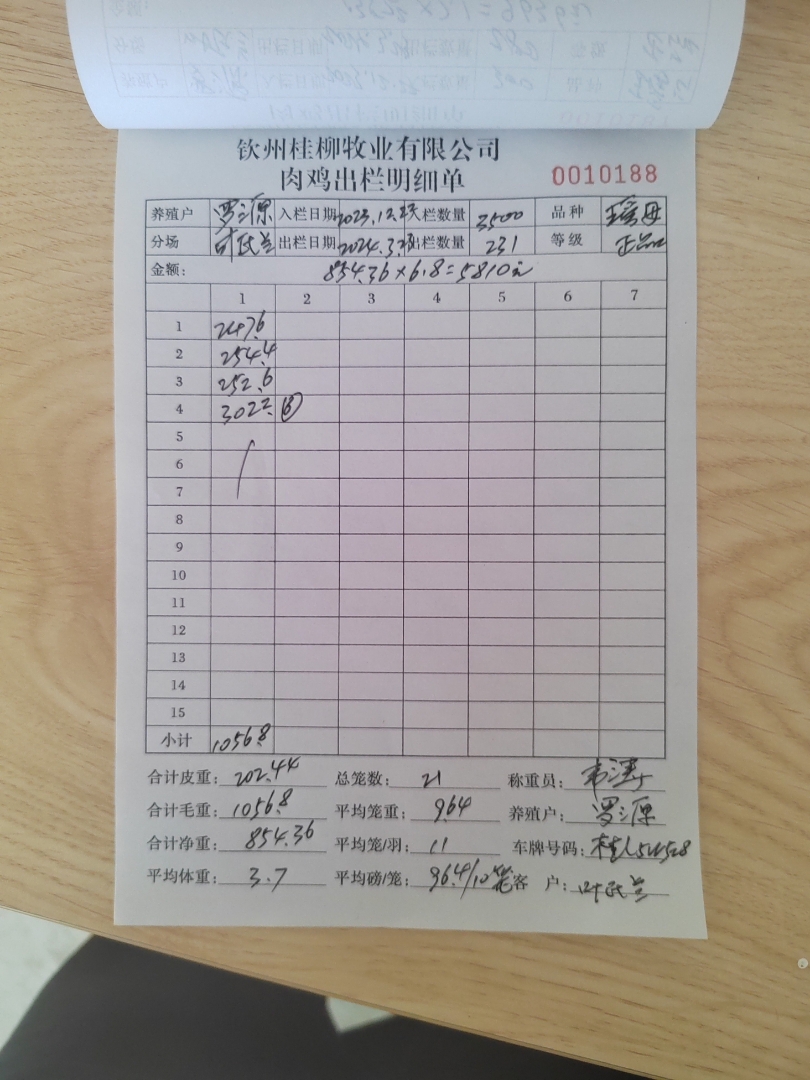 钦州桂柳牧业有限公司
肉鸡出栏明细单 0010188
养殖户 罗源 入栏日期 2023.12.27 入栏数量 3500 品种 瑶母
分场 叶氏兰 出栏日期 2024.3. 出栏数量 231 等级 正品
金额: 854.36×6.8=5810元
1 2 3 4 5 6 7
1 247.6
2 254.4
3 252.6
4 302.2 ⑥
5
6
7
8
9
10
11
12
13
14
15
小计 1056.8
合计皮重: 202.44 总笼数: 21 称重员: 韦
合计毛重: 1056.8 平均笼重: 9.64 养殖户: 罗源
合计净重: 854.36 平均笼/羽: 11 车牌号码: 桂
平均体重: 3.7 平均磅/笼: 96.4/10笼 客户: 叶氏兰